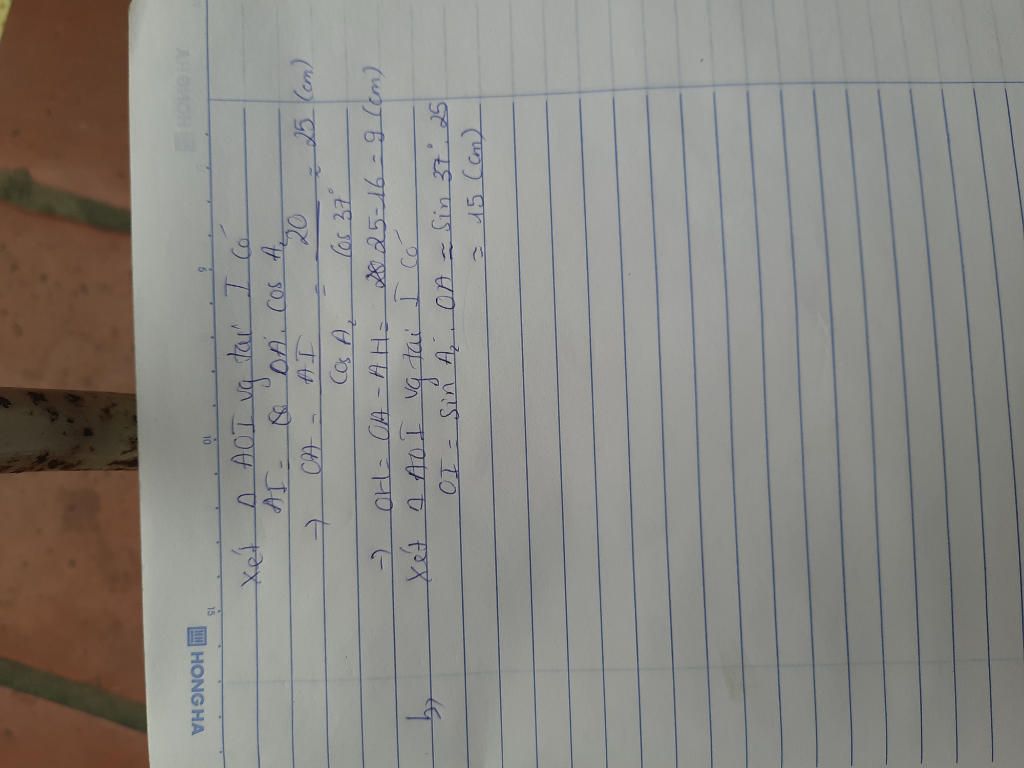 HONG HA
5
10
15
Xét Δ AOI vg tại I có
AI = OA. cos A₂
→ OA = AI / cos A₂ = 20 / cos 37° ≈ 25 (cm)
→ OH = OA - AH = 25-16 = 9 (cm)
b) Xét Δ AOI vg tại I có
OI = sin A₂. OA = sin 37°. 25
≈ 15 (cm)